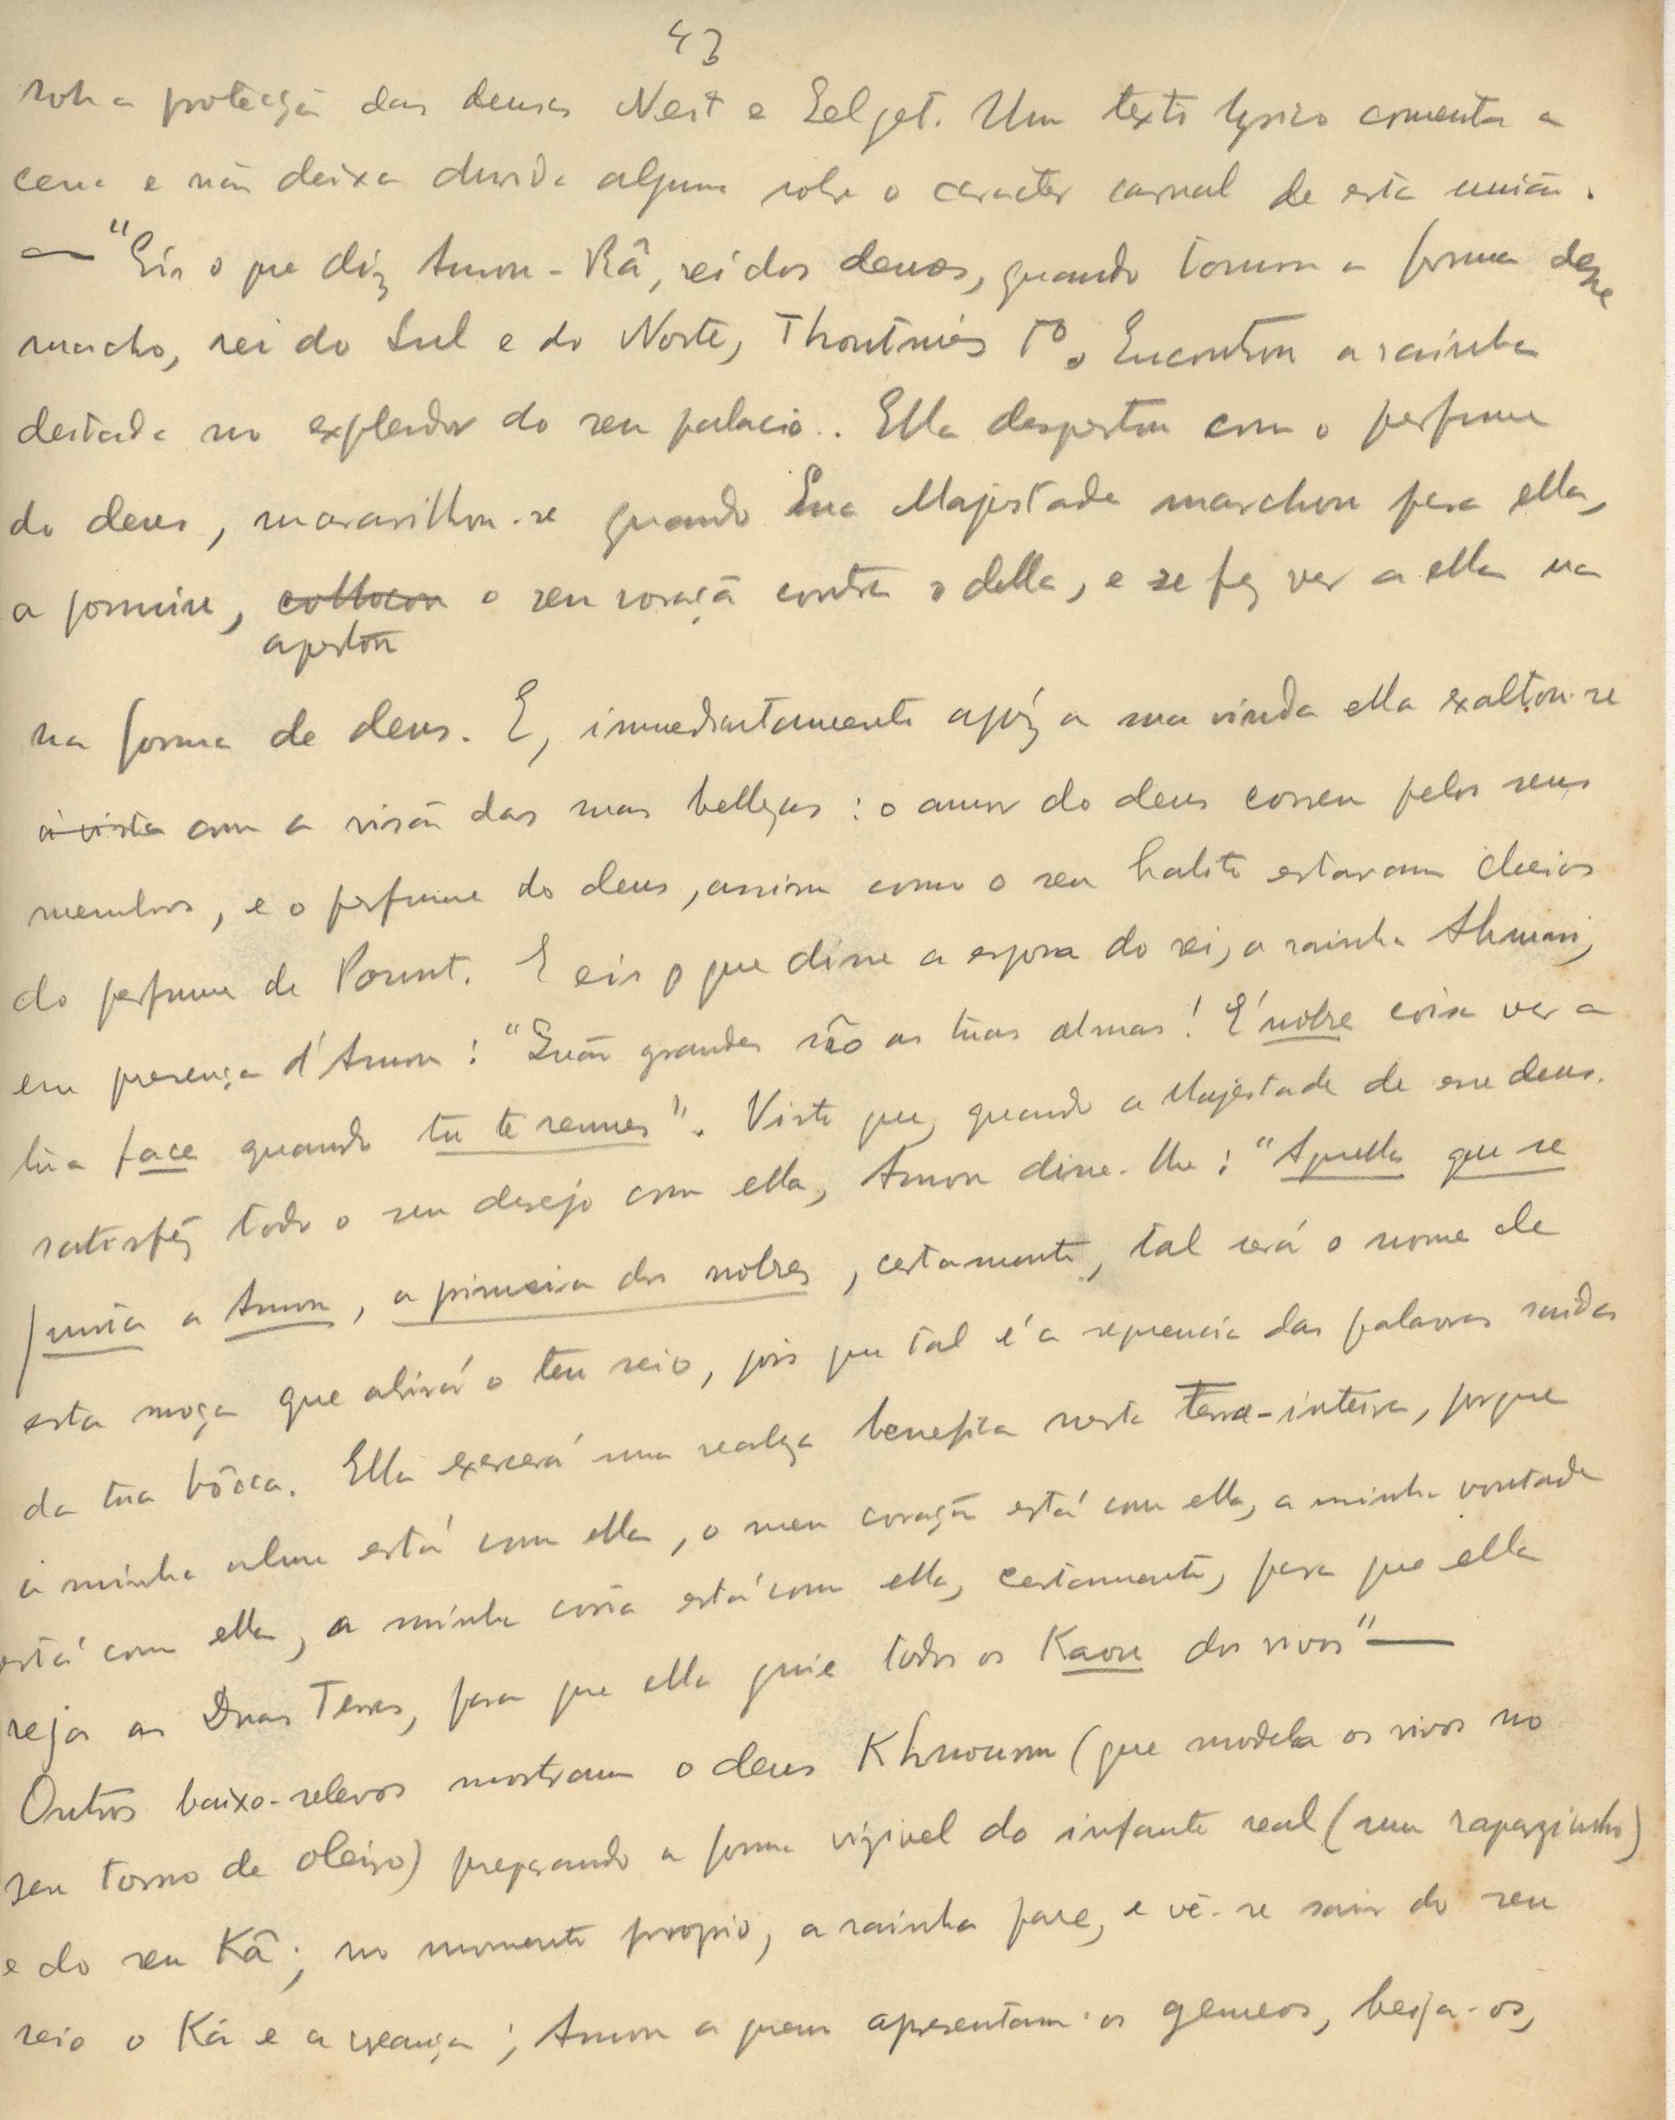 43
sob a protecção das deusas Neit e Selqet. Um texto lyrico comenta a
cena e não deixa duvida alguma sobre o caracter carnal de esta união.
— "Eis o que diz Amon-Râ, rei dos deuses, quando tomou a forma desse
macho, rei do Sul e do Norte, Thoutmès Iº. Encontrou a rainha
deitada no explendor do seu palacio.. Ella despertou com o perfume
do deus, maravilhou-se quando Sua Majestade marchou para ella,
a possuiu, collocou o seu coração contra o della, e se fez ver a ella na
apertou
na forma de deus. E, immediatamente apóz a sua vinda ella exaltou-se
á vista com a visão das suas bellezas: o amor do deus correu pelos seus
membros, e o perfume do deus, assim como o seu halito estavam cheios
do perfume de Pount. E eis o que disse a esposa do rei, a rainha Ahmasi,
em presença d'Amon: "Quão grandes são as tuas almas! É nobre coisa ver a
tua face quando tu te reunes". Visto que, quando a Majestade de esse deus.
satisfêz todo o seu desejo com ella, Amon disse-lhe: "Aquella que se
junta a Amon, a primeira dos nobres, certamente, tal será o nome de
esta moça que abrirá o teu seio, pois que tal é a sequencia das palavras saidas
da tua bôcca. Ella exercerá uma realeza benefica nesta terra-inteira, porque
a minha alma está com ella, o meu coração está com ella, a minha vontade
está com ella, a minha corôa está com ella, certamente, para que ella
reja as Duas Terras, para que ella guie todos os Kaou dos vivos" —
Outros baixo-relevos mostram o deus Khnoum (que modela os vivos no
seu torno de oleiro) preparando a forma vizivel do infante real (um rapazzinho)
e do seu Kâ; no momento proprio, a rainha pare, e vê-se sair do seu
seio o Kâ e a creança; Amon a quem apresentam os gemeos, beija-os,